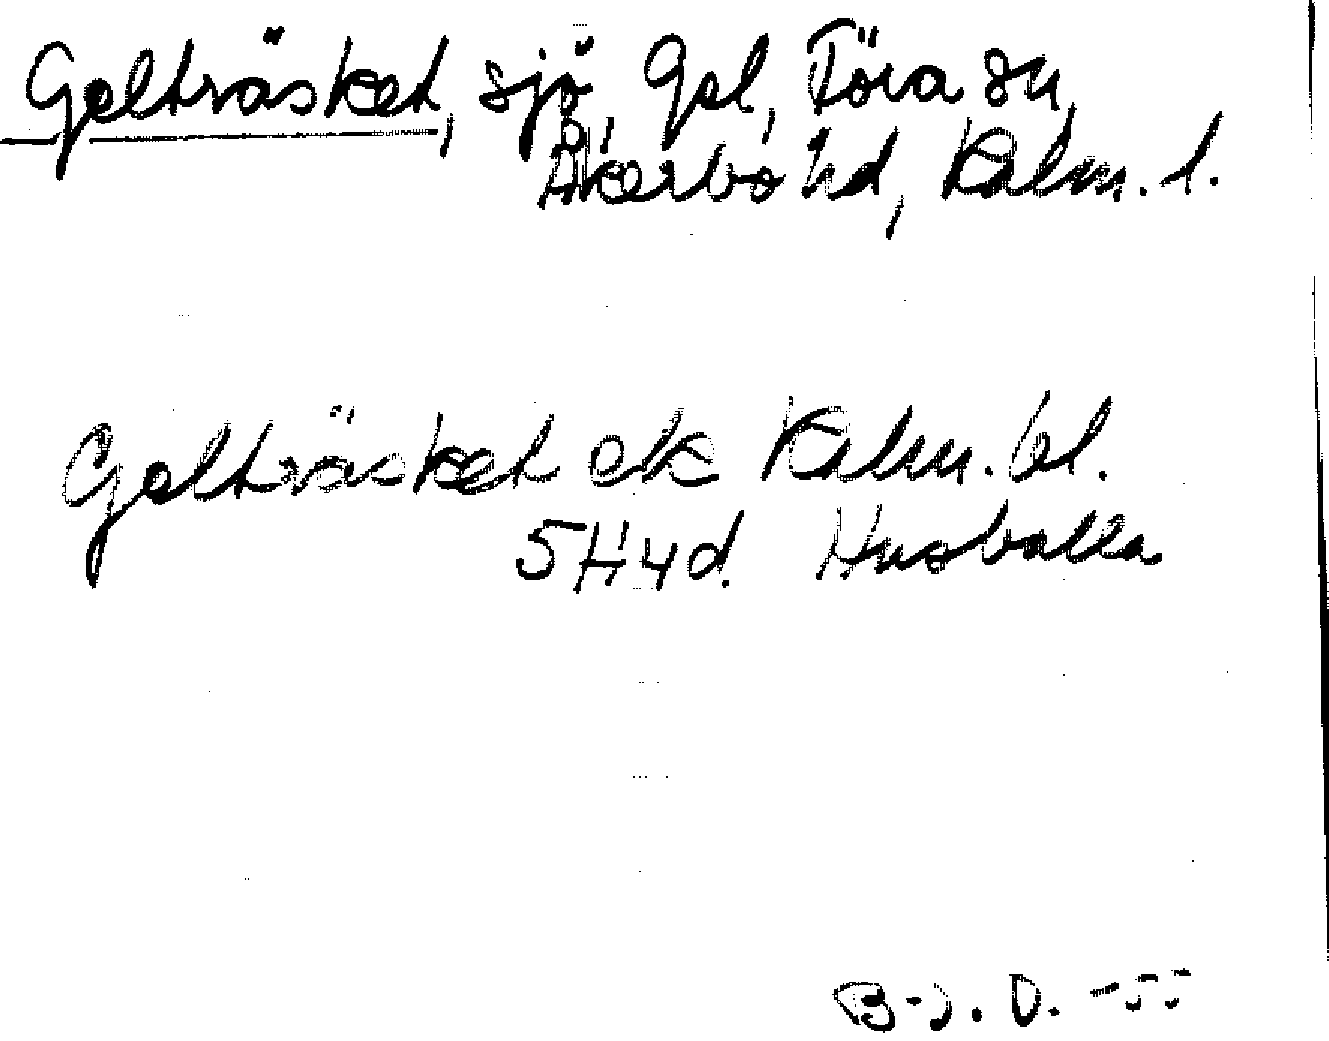 Golträsket, sjö, Gsl, Föra sn,
Åkerbo hd, Kalm. l.
Golträsket ek Kalm. bl.
5H4d. Husvalla
B-J. D. -55